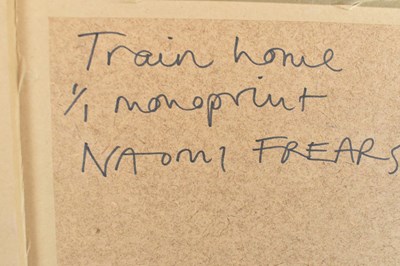 Train home
1/1 monoprint
NAOMI FREARS